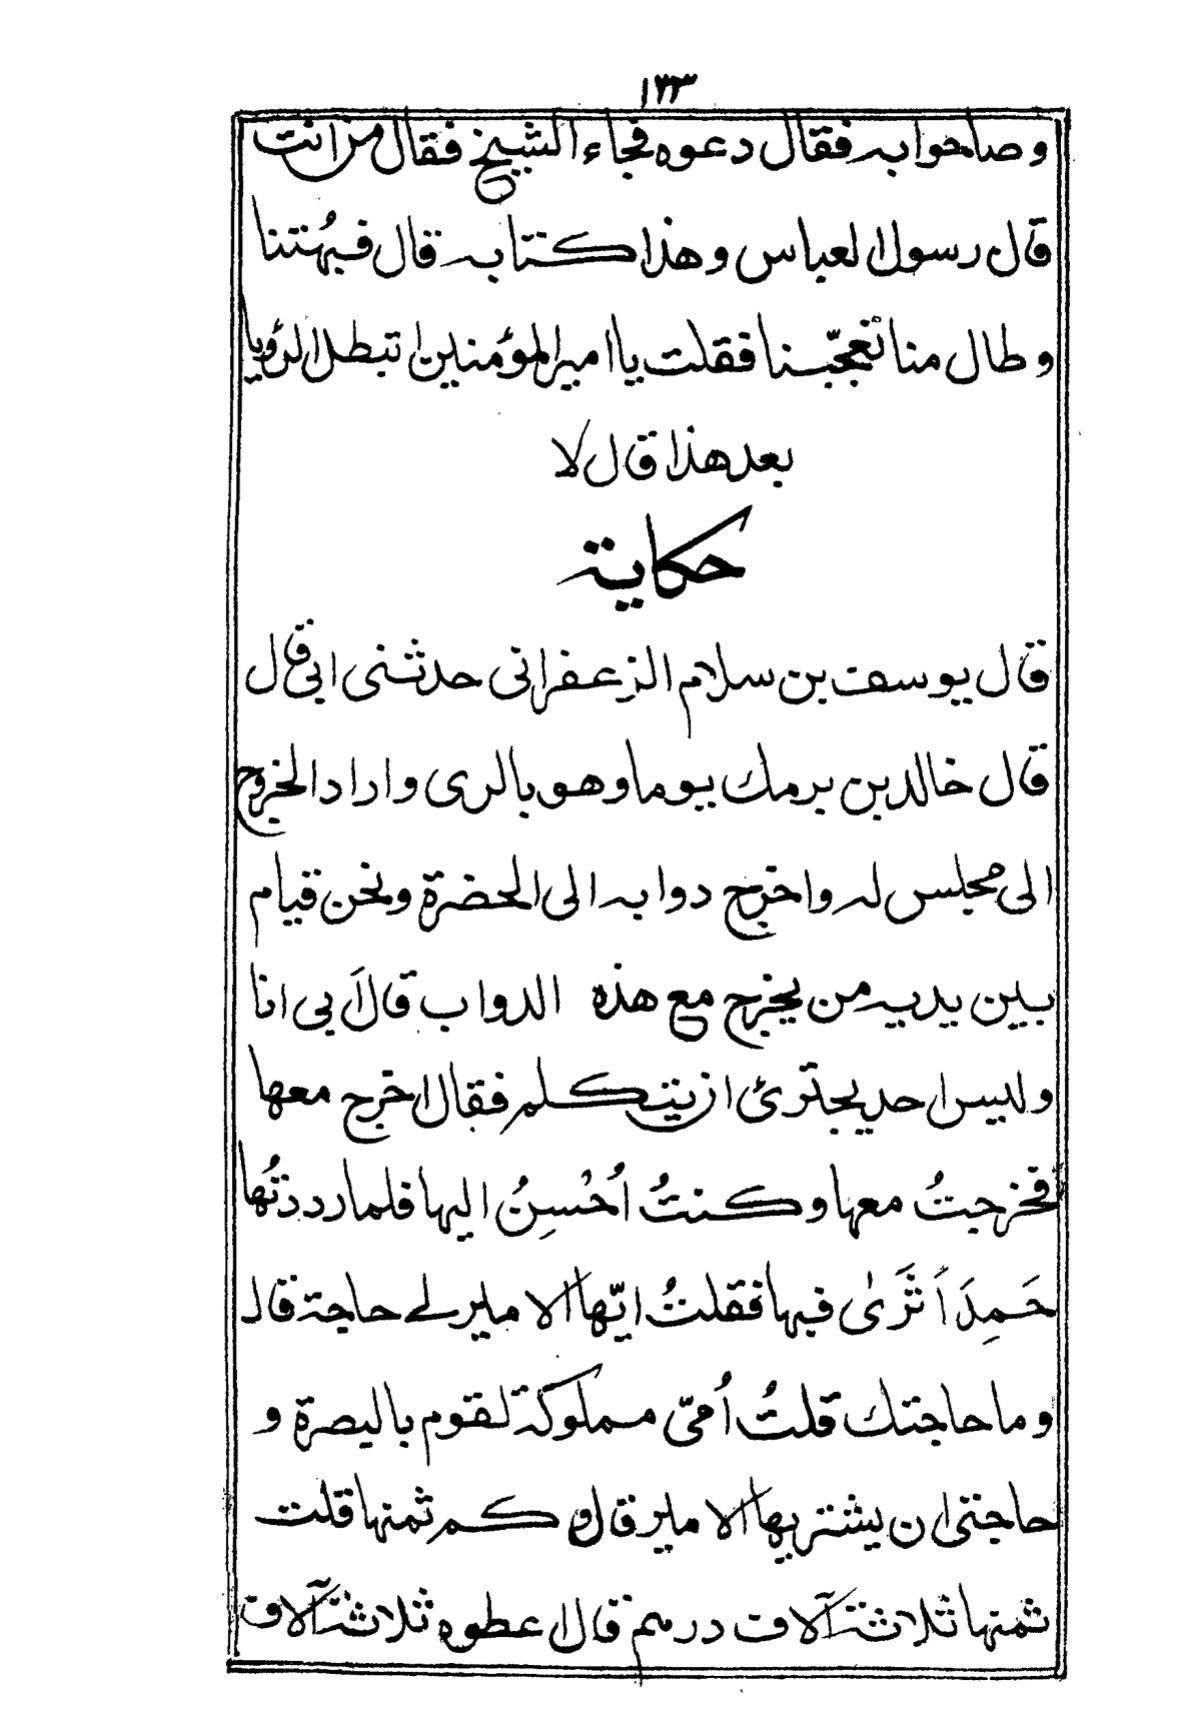 ١٣٣
وصاحوا به فقال دعوه فجاء الشيخ فقال من انت
قال رسول العباس وهذا كتابه قال فبُهتنا
وطال منا تعجّبنا فقلت يا امير المؤمنين اتبطل الرؤيا
بعد هذا قال لا
حكاية
قال يوسف بن سلام الزعفرانى حدثنى ابى قال
قال خالد بن برمك يوما وهو بالرى واراد الخروج
الى مجلس له واخرج دوابه الى الحضرة ونحن قيام
بين يديه من يخرج مع هذه الدواب قالَ بى انا
وليس احد يجترئ ان يتكلم فقال اخرج معها
فخرجتُ معها وكنتُ اُحْسِنُ اليها فلما رددتُها
حَمِدَ اَثَرىٰ فيها فقلتُ ايّها الامير لے حاجة قال
وما حاجتك قلتُ اُمىّ مملوكة لقوم بالبصرة و
حاجتى ان يشتريها الامير قال وكم ثمنها قلت
ثمنها ثلاثة آلاف درهم قال اعطوه ثلاثة آلاف